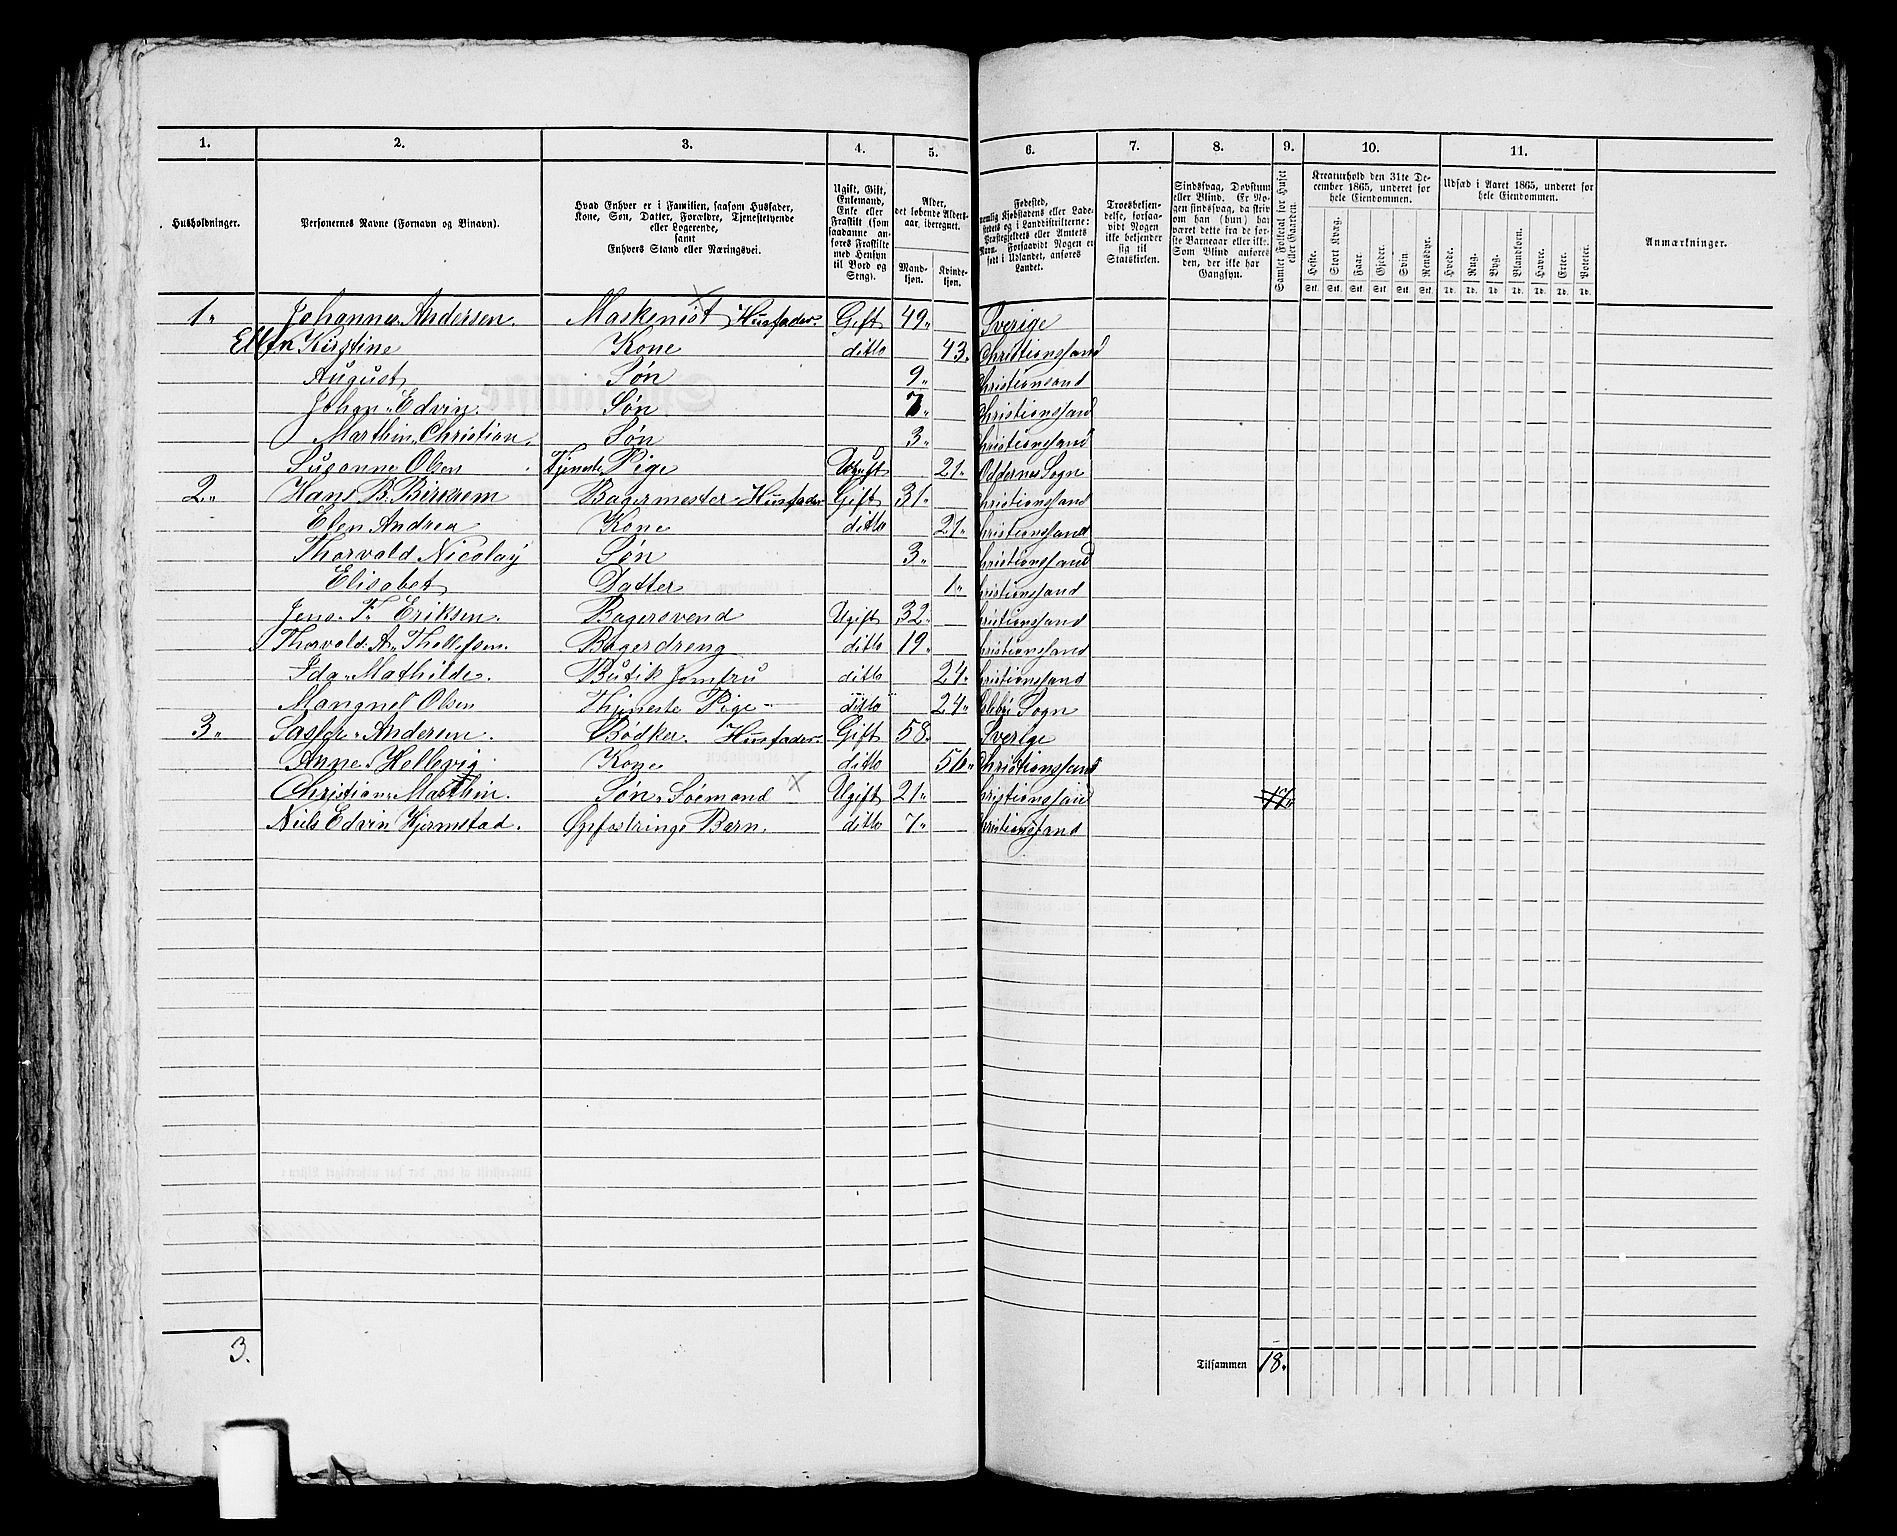 1. 2. 3. 4. 5. 6. 7. 8. 9. 10. 11.
Husholdninger.
Personernes Navne (Fornavn og Binavn).
Hvad Enhver er i Familien, saasom Husfader,
Kone, Søn, Datter, Forældre, Tjenestetyende
eller Logerende,
samt
Enhvers Stand eller Næringsvei.
Ugift, Gift,
Enkemand,
Enke eller
Fraskilt (som
saadanne an-
føres Fraskilte
med Hensyn
til Bord og
Seng).
Alder,
det løbende Alders-
aar iberegnet.
Mand-
kjøn.
Kvinde-
kjøn.
Fødested,
nemlig Kjøbstadens eller Lade-
stedets og i Landdistrikterne:
Præstegjeldets eller Amtets
Navn. Forsaavidt Nogen er
født i Udlandet, anføres
Landet.
Troesbekjen-
delse, forsaa-
vidt Nogen
ikke bekjender
sig til
Statskirken.
Sindssvag, Døvstum
eller Blind. Er No-
gen sindssvag, da skriv
om han (hun) har
været dette fra de før-
ste Barneaar eller ikke.
Som Blind anføres
den, der ikke har
Gangsyn.
Samlet Folketal for Huset
eller Gaarden.
Kreaturhold den 31te De-
cember 1865, underet for
hele Eiendommen.
Heste. Stort Kvæg. Faar. Gjeder. Svin. Rensdyr.
Stk. Stk. Stk. Stk. Stk. Stk.
Udsæd i Aaret 1865, underet for
hele Eiendommen.
Hvede. Rug. Byg. Blandkorn. Havre. Erter. Poteter.
Td. Td. Td. Td. Td. Td. Td.
Anmærkninger.
1. Johannes Andersen. Maskenist Husfader. Gift 49 Sverige
Ellen Kirstine Kone ditto 43. Christiansand
August Søn 9 Christiansand
Johan Edvin. Søn 7 Christiansand
Marthin Christian. Søn 3 Christiansand
Susanne Olsen Tjeneste Pige Ugift 21 Oddernes Sogn
2. Hans B. Birkrem Bagermester Husfader Gift 31 Christiansand
Elen Andrea Kone ditto 21 Christiansand
Thorvald Nicolay Søn 3 Christiansand
Elisabet Datter 1 Christiansand
Jens F. Eriksen. Bagersvend Ugift 32 Christiansand
Thorvald A. Thellefsen. Bagerdreng ditto 19 Christiansand
Ida Mathilde. Butik Jomfru ditto 24 Christiansand
Mangnel Olsen Thjeneste Pige ditto 24 Sogn
3. Andersen. Bødker. Husfader. Gift 58. Sverige
Anne Hellevig Kone ditto 56 Christiansand
Christian Marthin. Søn Sømand Ugift 21 Christiansand
Niels Edvin Hjermstad. Opfostrings Barn. ditto 7 Christiansand
3. Tilsammen 18.